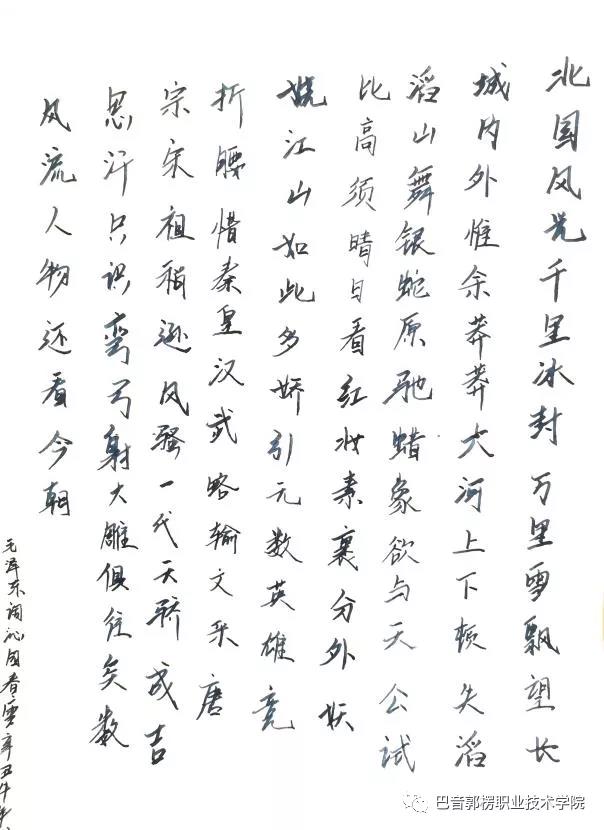 北国风光千里冰封万里雪飘望长
城内外惟余莽莽大河上下顿失滔
滔山舞银蛇原驰蜡象欲与天公试
比高须晴日看红妆素裹分外妖
娆江山如此多娇引无数英雄竞
折腰惜秦皇汉武略输文采唐
宗宋祖稍逊风骚一代天骄成吉
思汗只识弯弓射大雕俱往矣数
风流人物还看今朝
毛泽东词沁园春雪辛丑牛年
巴音郭楞职业技术学院